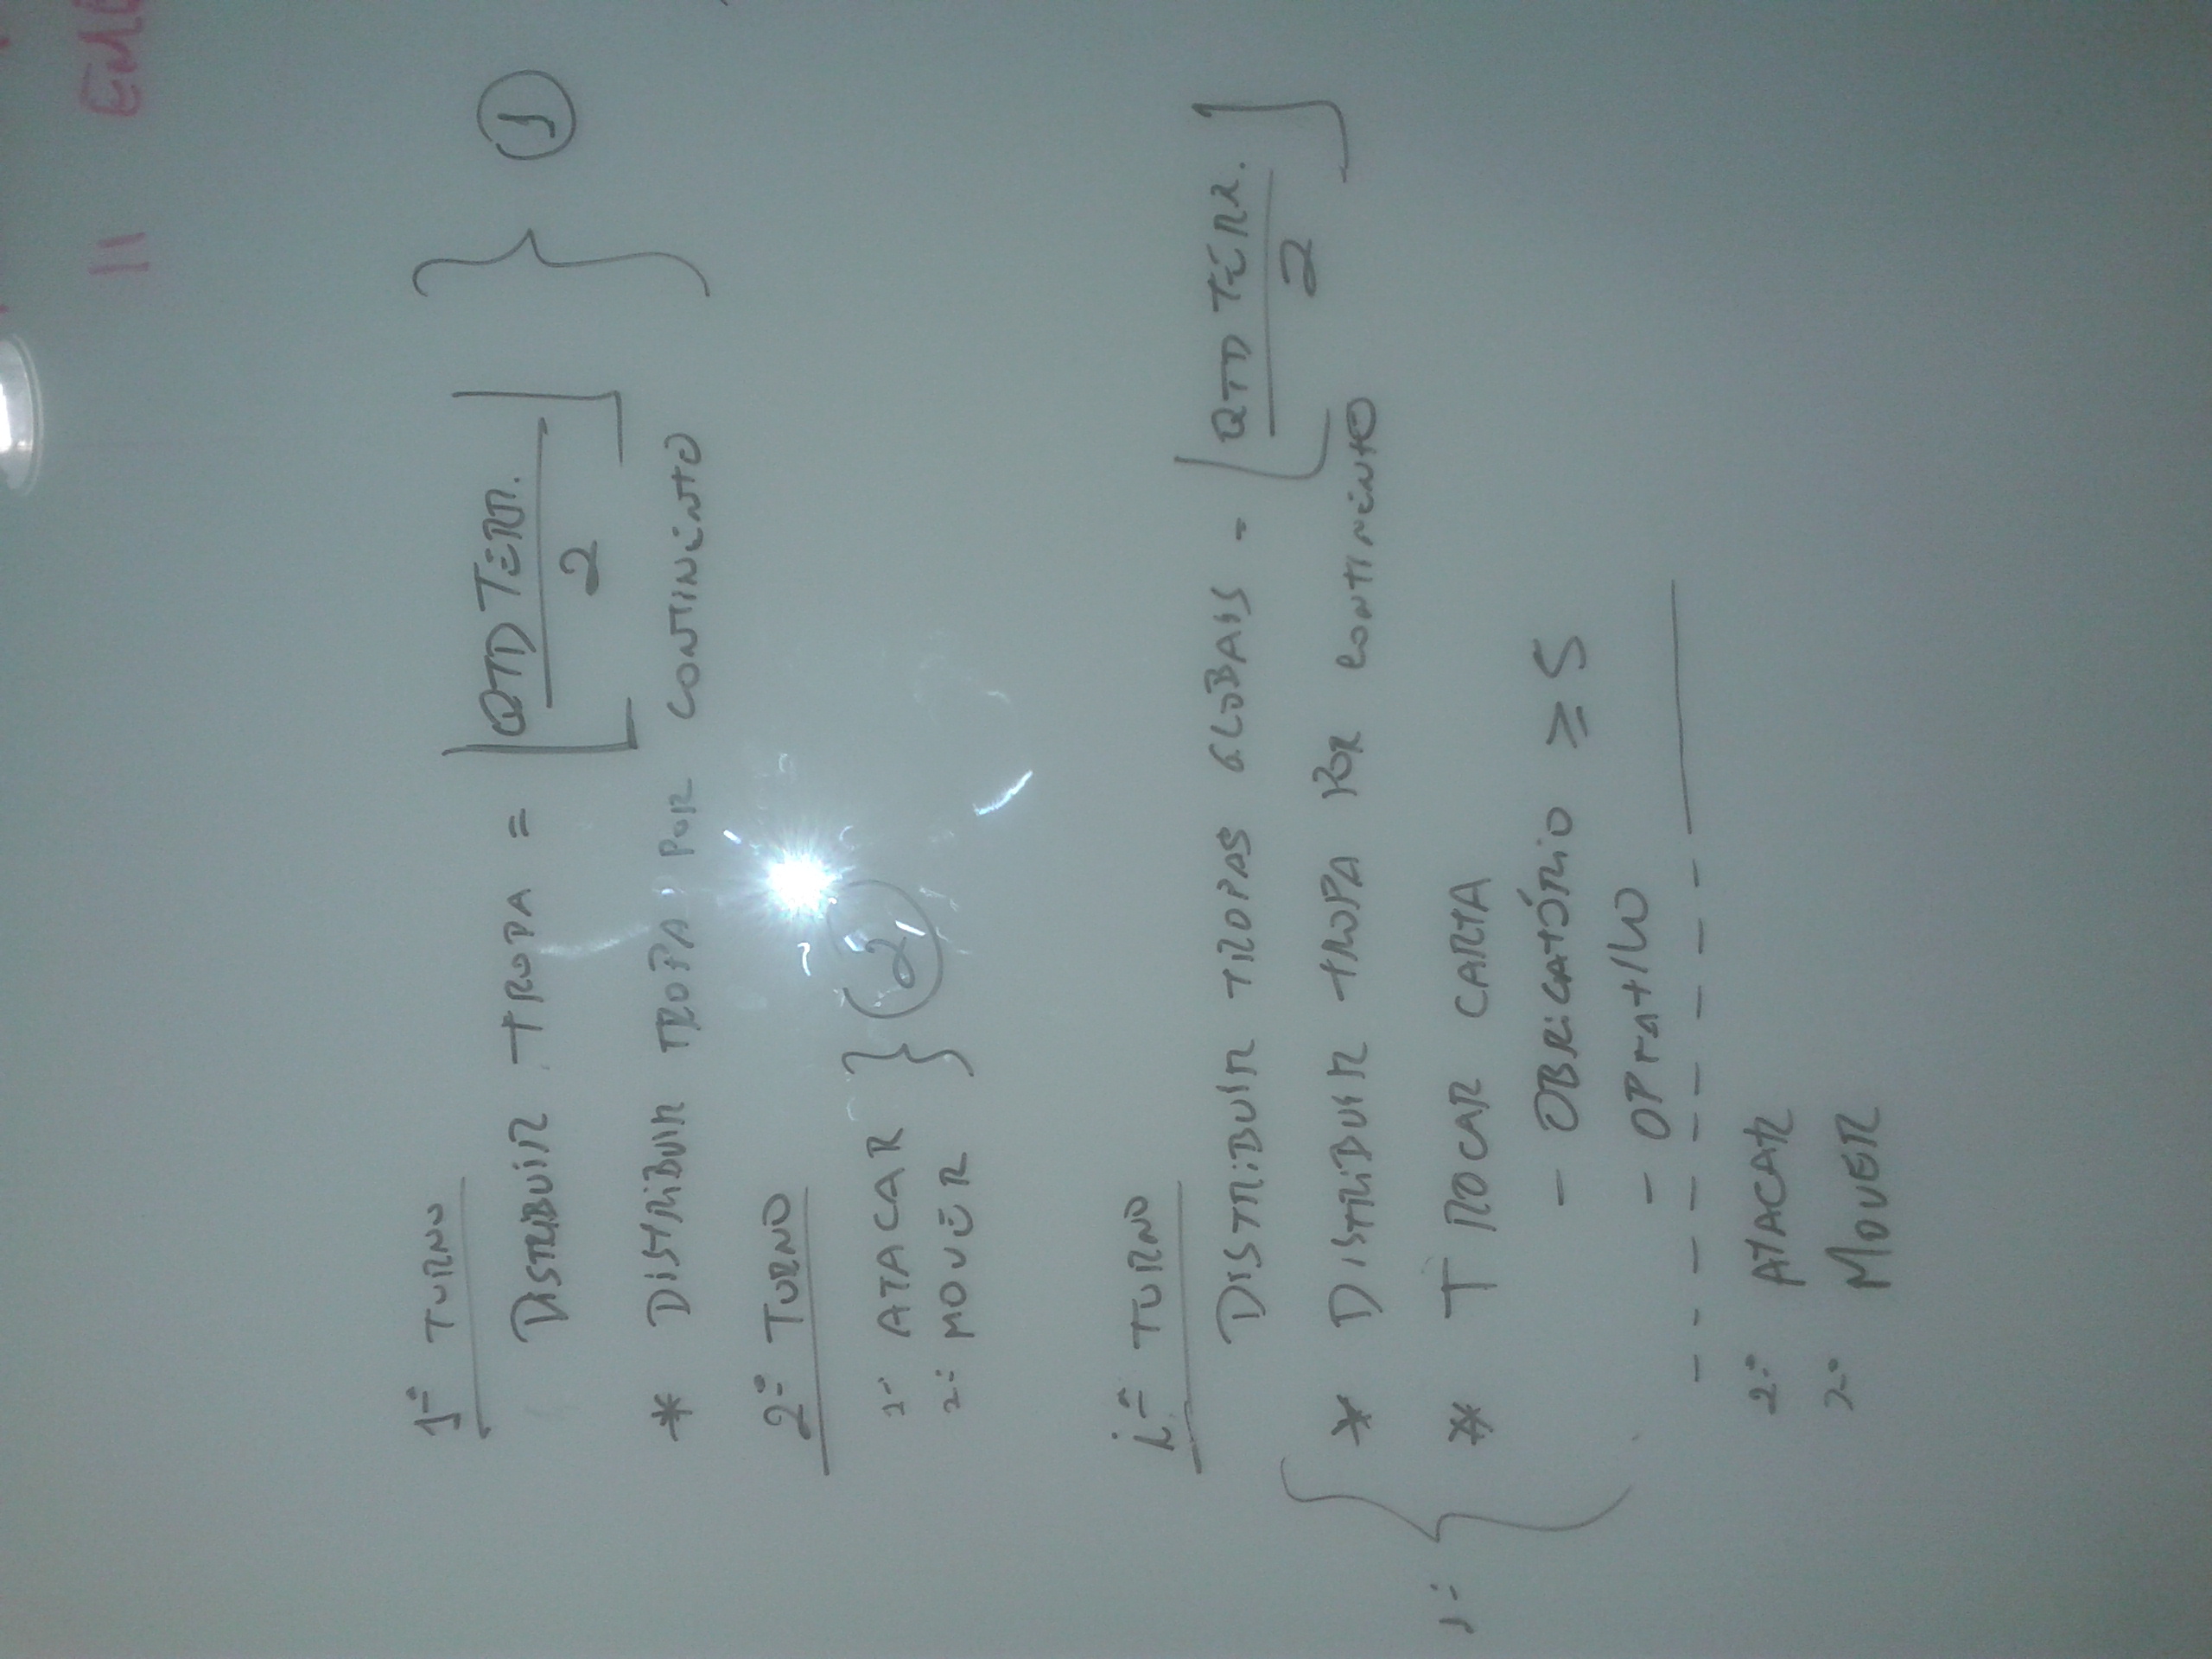 11 EME
1º TURNO
DISTRIBUIR TROPA = ⌊QTD TERR. / 2⌋ } ①
* DISTRIBUIR TROPA POR CONTINENTE
2º TURNO
1º ATACAR } ②
2º MOVER
iº TURNO
DISTRIBUIR TROPAS GLOBAIS = ⌊QTD TERR. / 2⌋
* DISTRIBUIR TROPA POR CONTINENTE
1º { * TROCAR CARTA
- OBRIGATÓRIO ≥ 5
- OPTATIVO
2º ATACAR
2º MOVER